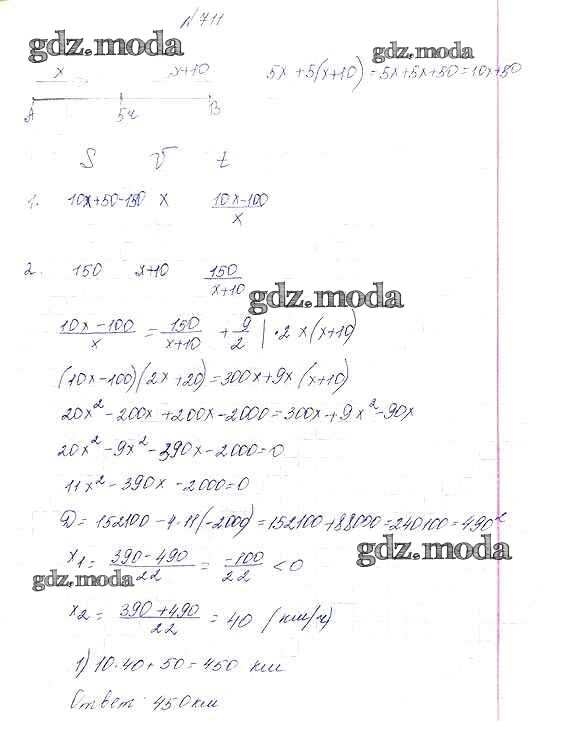 № 711
gdz.moda
gdz.moda
x x+10 5x+5(x+10)=5x+5x+50=10x+50
A 5ч B
S V t
1. 10x+50-150 x (10x-100)/x
2. 150 x+10 150/(x+10)
gdz.moda
(10x-100)/x = 150/(x+10) + 9/2 | ·2x(x+10)
(10x-100)(2x+20)=300x+9x(x+10)
20x²-200x+200x-2000=300x+9x²-90x
20x²-9x²-390x-2000=0
11x²-390x-2000=0
D=152100-4·11(-2000)=152100+88000=240100=490²
gdz.moda
x₁=(390-490)/22=-100/22<0
gdz.moda
x₂=(390+490)/22=40 (км/ч)
1) 10·40+50=450 км
Ответ: 450км